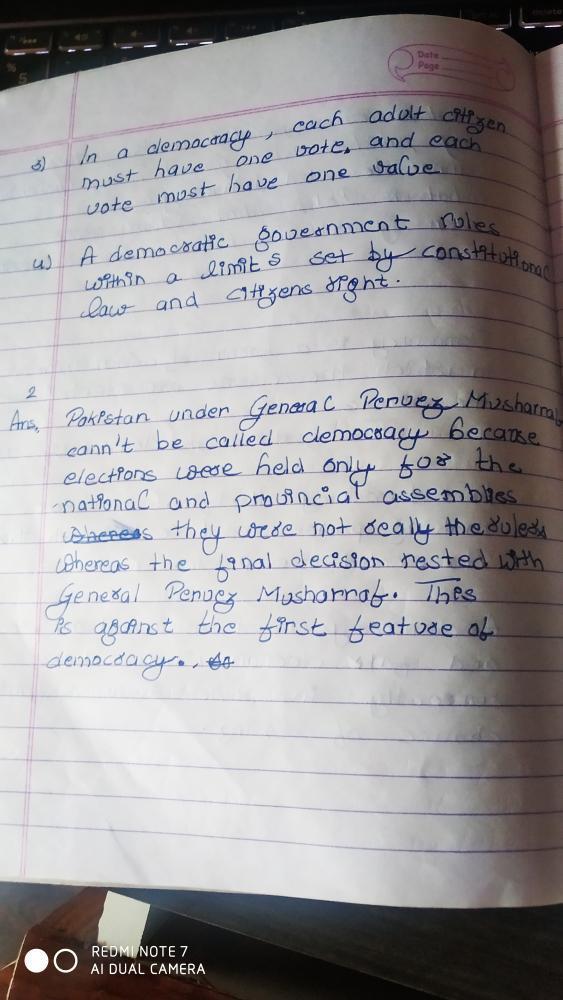 Date
Page
3) In a democracy, each adult citizen
must have one vote, and each
vote must have one value
4) A democratic government rules
within a limits set by constitutional
law and citizens right.
2
Ans, Pakistan under General Pervez Musharraf
cann't be called democracy because
elections were held only for the
national and provincial assemblies
whereas they were not realy the rulers
whereas the final decision rested with
General Pervez Musharraf. This
is against the first feature of
democracy.
REDMI NOTE 7
AI DUAL CAMERA